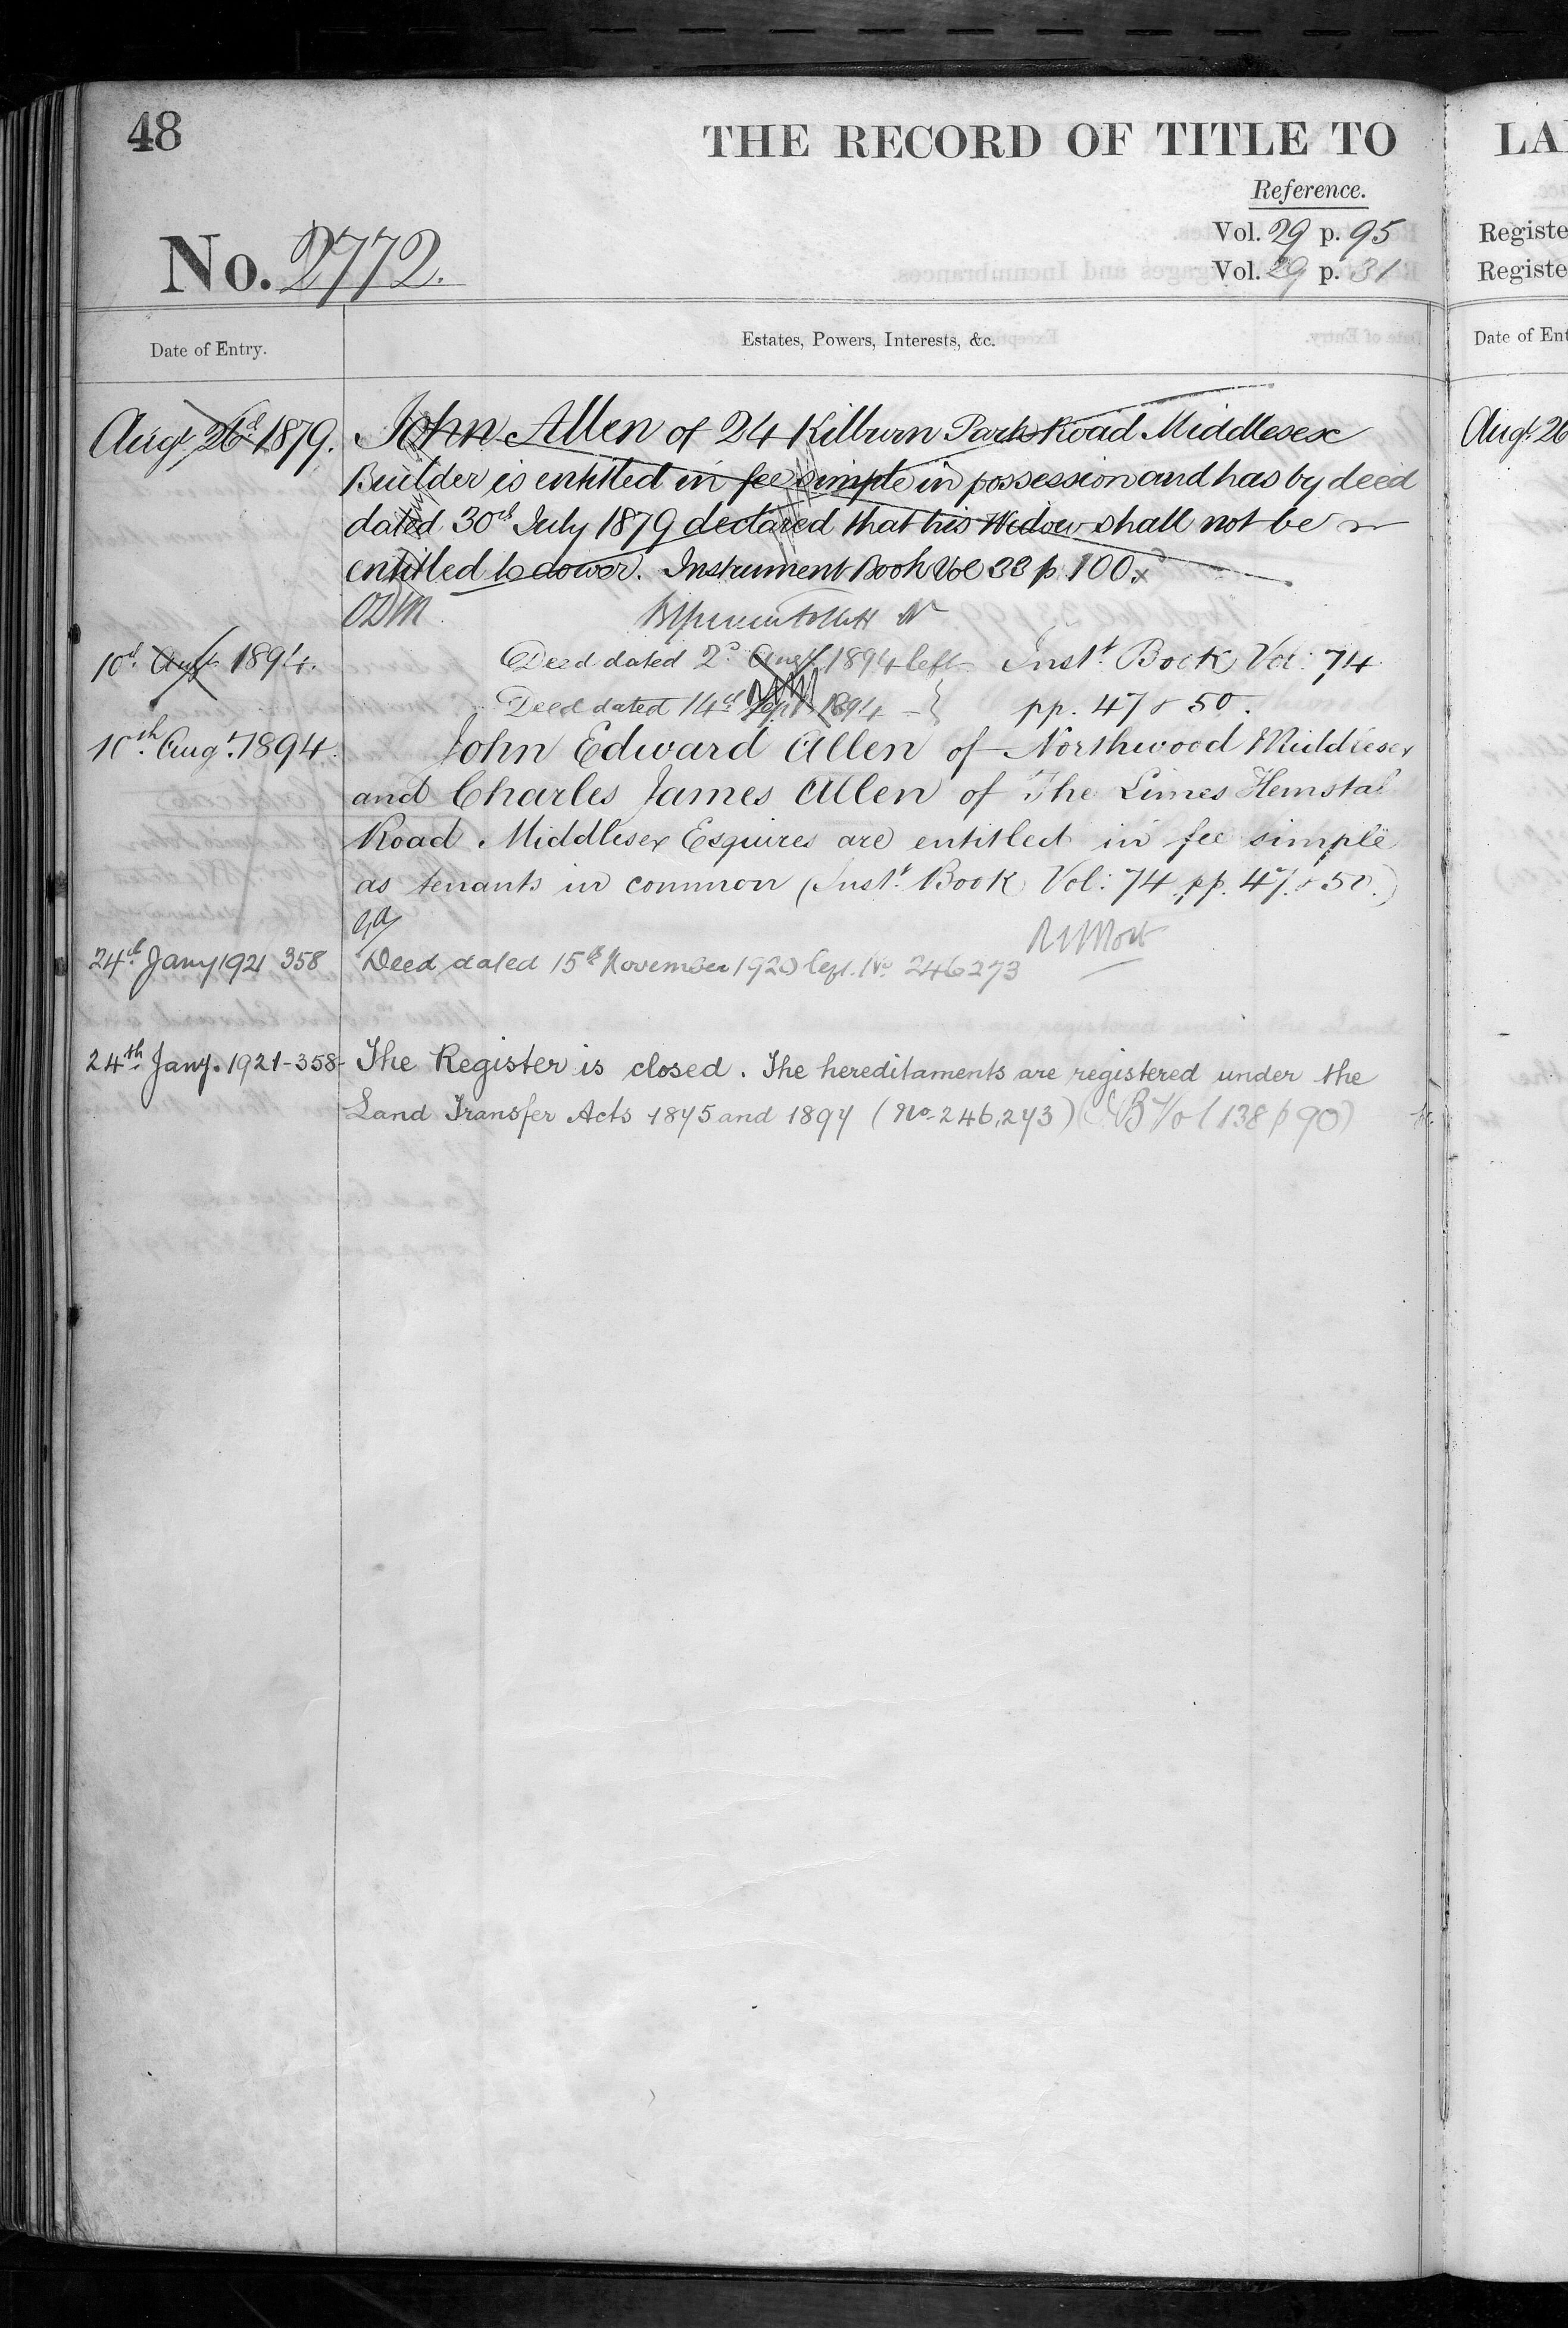 48
THE RECORD OF TITLE TO
LA
Reference.
Vol. 29 p. 95
Vol. 29 p. 31
Registe
Registe
No. 2772.
Date of Entry.
Estates, Powers, Interests, &c.
Date of Ent
Augt. 26th 1879.
John Allen of 24 Kilburn Park Road Middlesex
Builder is entitled in fee simple in possession and has by deed
dated 30th July 1879 declared that his Widow shall not be
entitled to dower. Instrument Book Vol 33 p 100.
Augt. 26
10th Augt 1894.
Deed dated 2d Augt 1894 left Inst. Book Vol: 74
Deed dated 14th Sept 1894 } pp. 47 & 50.
10th Augt. 1894.
John Edward Allen of Northwood Middlesex
and Charles James Allen of The Limes Hemstal
Road Middlesex Esquires are entitled in fee simple
as tenants in common (Inst. Book Vol: 74 pp. 47 & 50.)
24th Jany 1921 358
Deed dated 15th November 1920 left. No 246273
24th Jany. 1921-358-
The Register is closed. The hereditaments are registered under the
Land Transfer Acts 1875 and 1897 (No. 246,273) Vol 138 p 90)